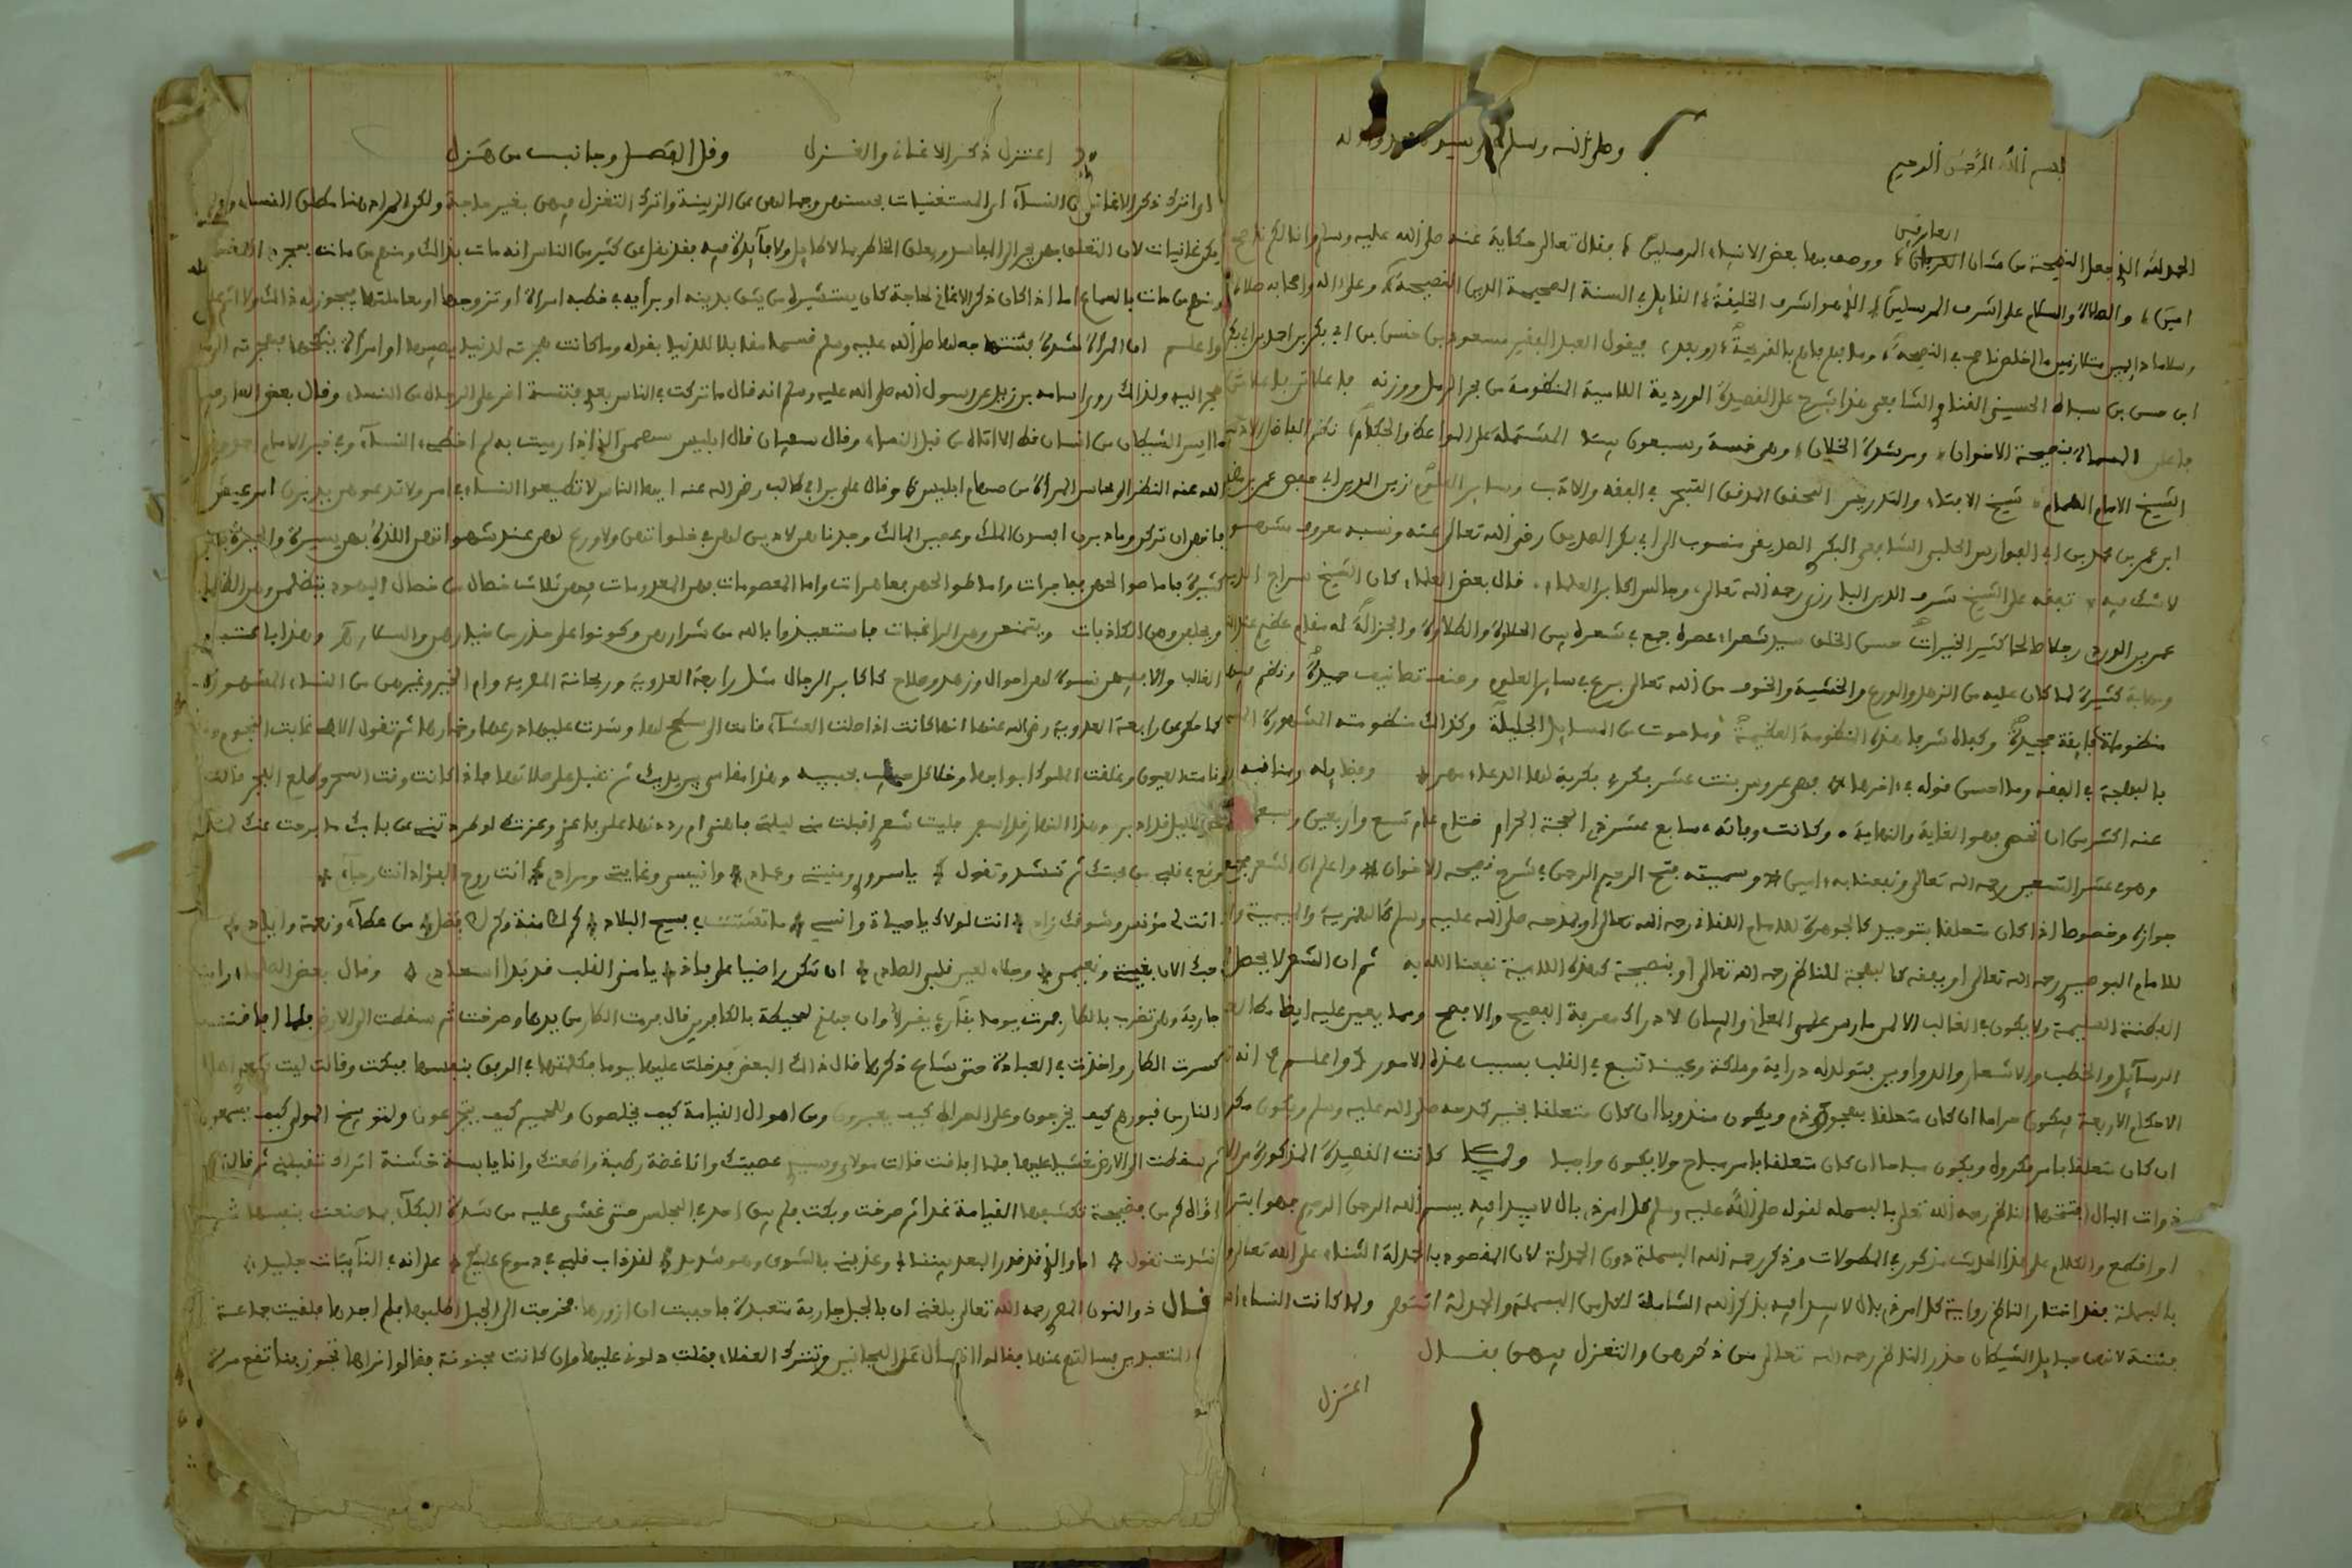 بسم الله الرحمن الرحيم وصلى الله وسلم
العارفين
الحمد لله الذي جعل النصيحة من شان ووصف بها بعض الانبياء المرسلين فقال تعالى حكاية عنه صلى الله عليه وسلم وانا لكم ناصح
امين والصلاة والسلام على اشرف المرسلين الذي هو اشرف الخليفة القايل في السنة الصحيحة الدين النصيحة وعلى اله واصحابه صلاة
وسلاما دايمين متلازمين ما اخلص ناصح في النصيحة وبعد فيقول العبد الفقير مسعود بن حسن بن ابي بكر بن احمد بن ابي بكر
ابن حسن بن الحسيني القناوي الشافعي هذا شرح على القصيدة الوردية اللامية المنظومة من بحر الرمل ووزنه فاعلاتن فاعلاتن
فاعلن المسماة بنصيحة الاخوان ومرشدة الخلان وهي خمسة وسبعون بيتا المشتملة على المواعظ والحكم نظم
الشيخ الامام الهمام شيخ الافتاء والتدريس المحقق المدقق المتبحر في الفقه والادب وساير العلوم زين الدين ابي حفص عمر بن مظفر
ابن عمر بن محمد بن ابي الفوارس الحلبي الشافعي البكري الصديقي منسوب الى ابي بكر الصديق رضي الله تعالى عنه ونسبه معروف مشهور
لا شك فيه تفقه على الشيخ شرف الدين البارزي رحمه الله تعالى وجالس اكابر العلماء قال بعض العلماء كان الشيخ سراج الدين
عمر بن الوردي رجلا صالحا كثير الخيرات حسن الخلق سيد شعراء عصره جمع في شعره بين الحلاوة والطلاوة والجزالة له مقام عظيم
ومهابة كثيرة لما كان عليه من الزهد والورع والخشية والخوف من الله تعالى برع في ساير العلوم وصنف تصانيف جيدة ونظم
منظومات فايقة مجيدة وكفاه شرفا هذه المنظومة العظيمة وما حوت من المسايل الجليلة وكذلك منظومته المشهورة
بالبهجة في الفقه وما احسن قوله في اخرها فهي عروس بنت عشر بكر بكرية لها الدعاء مهر وفضايله ومناقبه
عنه اكثر من ان تحصى فهو الغاية والنهاية وكانت وفاته سابع عشر ذي الحجة الحرام ختام عام تسع واربعين وسبعمائة
وهو في عشر التسعين رحمه الله تعالى ونفعنا به امين وسميته فتح الرحيم الرحمن في شرح نصيحة الاخوان واعلم ان الشعر
جوازه وخصوصا اذا كان متعلقا بتوحيد كالجوهرة للامام اللقاني رحمه الله تعالى او بمدحه صلى الله عليه وسلم كالهمزية والميمية
للامام البوصيري رحمه الله تعالى او بفقه كالبهجة للناظم رحمه الله تعالى او بنصيحة كهذه اللامية نفعنا الله به ثم ان الشعر لا يحصل
الفطنة السليمة ولا يكون في الغالب الا لمن مارس علمي المعاني والبيان لادراك معرفة الفصيح والافصح ومما يعين عليه ايضا مطالعة
الرسايل والخطب والاشعار والدواوين يتولد له دراية وملكة وحينئذ تنبع في القلب بسبب هذه الامور واعلم انه
الاحكام الاربعة فيكون حراما ان كان متعلقا بهجو او ذم ويكون مندوبا ان كان متعلقا بخير كمدحه صلى الله عليه وسلم ويكون مكروها
ان كان متعلقا بامر مكروه ويكون مباحا ان كان متعلقا بامر مباح ولا يكون واجبا ولما كانت القصيدة المذكورة من الامور
ذوات البال افتتحها الناظم رحمه الله تعالى بالبسملة لقوله صلى الله عليه وسلم كل امر ذي بال لا يبدا فيه ببسم الله الرحمن الرحيم فهو ابتر
او اقطع والكلام على هذا الحديث مذكور في المطولات وذكر رحمه الله البسملة دون الحمدلة لان المقصود بالحمدلة الثناء على الله تعالى
بالبسملة فقد اختار الناظم رواية كل امر ذي بال لا يبدا فيه بذكر الله الشاملة لكل من البسملة والحمدلة انتهى ولما كانت النساء
فتنة لانهن حبايل الشيطان حذر الناظم رحمه الله تعالى من ذكرهن والتغزل فيهن فقال
اعتزل
اعتزل ذكر الاغاني والغزل وقل الفصل وجانب من هزل
اي اترك ذكر الاغاني من النساء اي المستغنيات بحسنهن وجمالهن عن الزينة واترك التغزل فيهن بغير حاجة ولكن المراد هنا مطلق النساء
يكن غانيات لان التعلق بهن يجر الى المفاسد ويعلق الخاطر بما لا طايل ولا فايدة فيه فقد نقل عن كثير من الناس انه مات بذلك ومنهم من مات بمجرد النظر
ومنهم من مات بالسماع اما اذا كان ذكر الاغاني لحاجة كان يستشيره من يثق بدينه او برأيه في خطبة امراة او تزوجها او معاملتها فيجوز له ذالك ولا اثم عليه
واعلم ان المراة فتنتها جعلها صلى الله عليه وسلم قسما مقابلا للدنيا بقوله وما كانت هجرته لدنيا يصيبها او امراة ينكحها فهجرته الى ما
هجر اليه ولذلك روى اسامة بن زيد عن رسول الله صلى الله عليه وسلم انه قال ما تركت في الناس بعدي فتنة اضر على الرجال من النساء وقال بعض العارفين
ما ايس الشيطان من انسان قط الا اتاه من قبل النساء وقال سفيان قال ابليس سهمي الذي اذا رميت به لم اخطيء النساء
الله عنه النظر الى محاسن المراة من سهام ابليس وقال علي بن ابي طالب رضي الله عنه ايها الناس لا تطيعوا النساء في امر ولا تدعوهن يدبرن امر عيش
فانهن ان تركن وما يدبرن افسدن الملك وعصين المالك وجدناهن لا دين لهن في خلواتهن ولا ورع لهن عند شهواتهن اللذة بهن يسيرة والحيرة بهن
كثيرة فاما صوالحهن ففاجرات واما طوالحهن فعاهرات واما المعصومات فهن المعدومات فيهن ثلاث خصال من خصال اليهود يتظلمن وهن الظالمات
ويحلفن وهن الكاذبات ويتمنعن وهن الراغبات فاستعيذوا بالله من شرارهن وكونوا على حذر من خيارهن والسلام وهذا باعتبار
الغالب والا فمنهن نسوة لهن احوال وزهد وصلاح كاكابر الرجال مثل رابعة العدوية وريحانة المصرية وام الخير وغيرهن من النساء المشهورات
كما حكي عن رابعة العدوية رضي الله عنها انها كانت اذا صلت العشاء قامت الى سطح لها وشدت عليها درعها وخمارها ثم تقول الاهي غابت النجوم
ونامت العيون وغلقت الملوك ابوابها وخلا كل حبيب بحبيبه وهذا مقامي بين يديك ثم تقبل على صلاتها فاذا كانت وقت السحر وطلع الفجر قالت
الاهي هذا الليل قد ادبر وهذا النهار قد اسفر فليت شعري اقبلت مني ليلتي فاهنى ام رددتها علي فاعزى وعزتك لو طردتني عن بابك ما برحت عنك
لما وقع في قلبي من محبتك ثم تنشد وتقول يا سروري ومنيتي وعمادي وانيسي وغايتي ومرادي انت روح الفؤاد انت رجائي
انت لي مؤنس وشوقك زادي انت لولاك يا حياتي وانسي ما تشتتت في فسيح البلاد كم لك منة وكم لك فضل من عطاء ونعمة وايادي
حبك الان بغيتي ونعيمي وجلاء لعين قلبي الصادي ان تكن راضيا علي فاني يا منى القلب قد بدا اسعادي وقال بعض الصلحاء رايت
جارية وهي تضرب بالطار فمرت يوما بقاري يقرا وان جهنم لمحيطة بالكافرين قال فرمت الطار من يدها وصرخت ثم سقطت الى الارض فلما افاقت
كسرت الطار واخذت في العبادة حتى شاع ذكرها قال ذالك البعض فدخلت عليها يوما فكلمتها في الرفق بنفسها فبكت وقالت ليت شعري اهل
النار من قبورهم كيف يخرجون وعلى الصراط كيف يعبرون ومن اهوال القيامة كيف يخلصون وللحميم كيف يتجرعون ولتوبيخ المولى كيف يسمعون
ثم سقطت الى الارض مغشيا عليها فلما افاقت قالت مولاي وسيدي عصيتك وانا غضة رطبة واطعتك وانا يابسة خشنة اتراك تقبلني ثم قالت
كم من فضيحة تكشفها القيامة غدا ثم صرخت وبكت فلم يبق احد في المجلس حتى غشي عليه من شدة البكاء بما صنعت بنفسها ثم
انشدت تقول اما والذي قد قدر البعد بيننا وعذبني بالشوق وهو شديد لقد ذاب قلبي في دموع على انه في النائبات جليد
قال ذو النون المصري رحمه الله تعالى بلغني ان بالجبل جارية متعبدة فاحببت ان ازورها فخرجت الى الجبل اطلبها فلم اجدها فلقيت جماعة
المتعبدين فسالتهم عنها فقالوا اتسال عن المجانين وتترك العقلاء فقلت دلوني عليها وان كانت مجنونة فقالوا نراها تجوز بنا تقع مرة